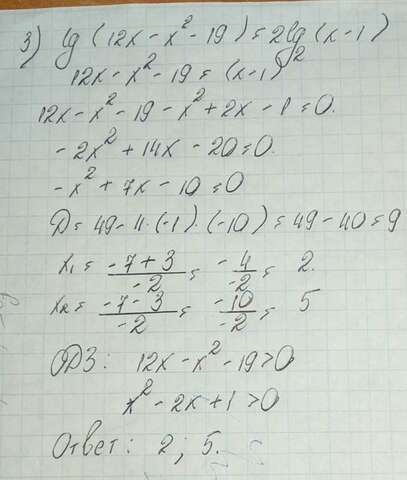 3) lg(12x - x² - 19) = 2lg(x - 1)
12x - x² - 19 = (x - 1)²
12x - x² - 19 - x² + 2x - 1 = 0.
-2x² + 14x - 20 = 0.
-x² + 7x - 10 = 0
D = 49 - 4·(-1)·(-10) = 49 - 40 = 9
x₁ = (-7 + 3)/(-2) = (-4)/(-2) = 2.
x₂ = (-7 - 3)/(-2) = (-10)/(-2) = 5
ОДЗ: 12x - x² - 19 > 0
x² - 2x + 1 > 0
Ответ: 2; 5.